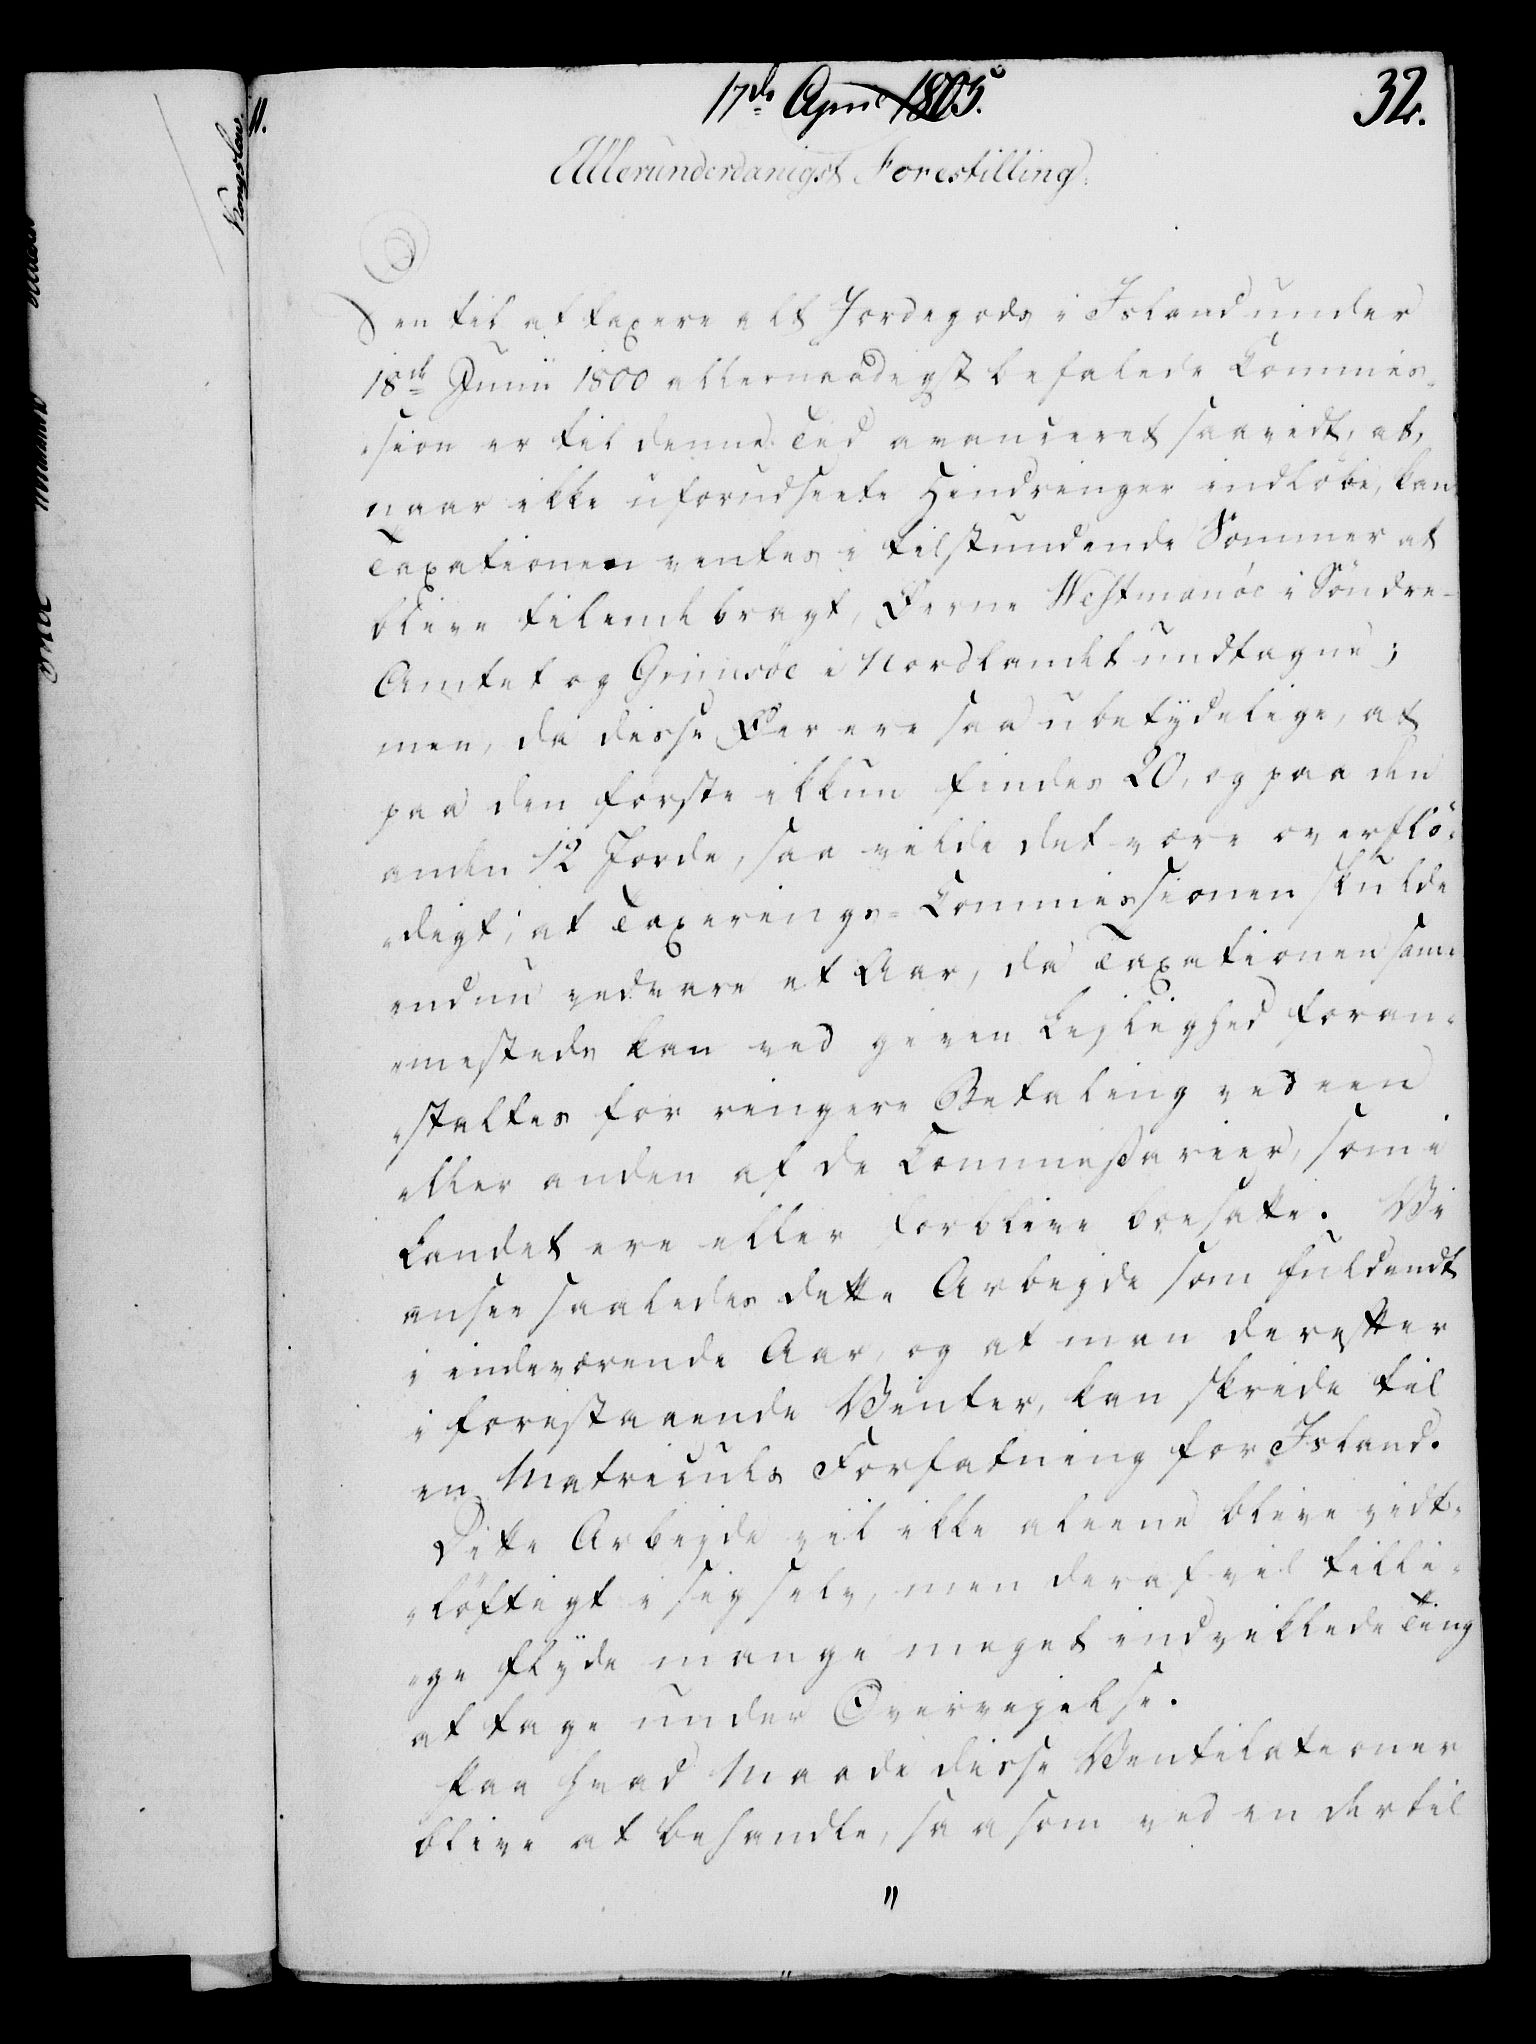 17de April 1805.
32.
Allerunderdanigst Forestilling.
Den til at taxere alt Jordegods i Island under
18de Junii 1800 allernaadigst befalede Commis-
sion er til denne Tid avanceret saavidt, at,
naar ikke uforudseete Hindringer indløbe, kan
Taxationen ventes i tilstundende Sommer at
blive tilendebragt, Øerne Westmanøe i Søndre-
Amtet og Grimsøe i Nordlandet undtagne;
men, da disse Øer ere saa ubetydelige, at
paa den første ikkun findes 20, og paa den
anden 12 Jorde, saa vilde det være overflø-
digt, at Taxerings-Commissionen skulde
endnu vedvare et Aar, da Taxationen sam-
mesteds kan ved given Lejlighed foran-
staltes for ringere Betaling ved een
eller anden af de Commissarier, som i
Landet ere eller forblive boesatte. Vi
ansee saaledes dette Arbejde som fuldendt
i indeværende Aar, og at man derefter
i forestaaende Vinter, kan skride til
en Matriculs Forfatning for Island.
Dette Arbejde vil ikke aleene blive vidt-
løftigt i sig selv, men deraf vil tilli-
ge flyde mange meget indviklede Ting
at tage under Overvejelse.
Paa hvad Maade disse Ventilationer
blive at behandle, saasom ved en dertil
"